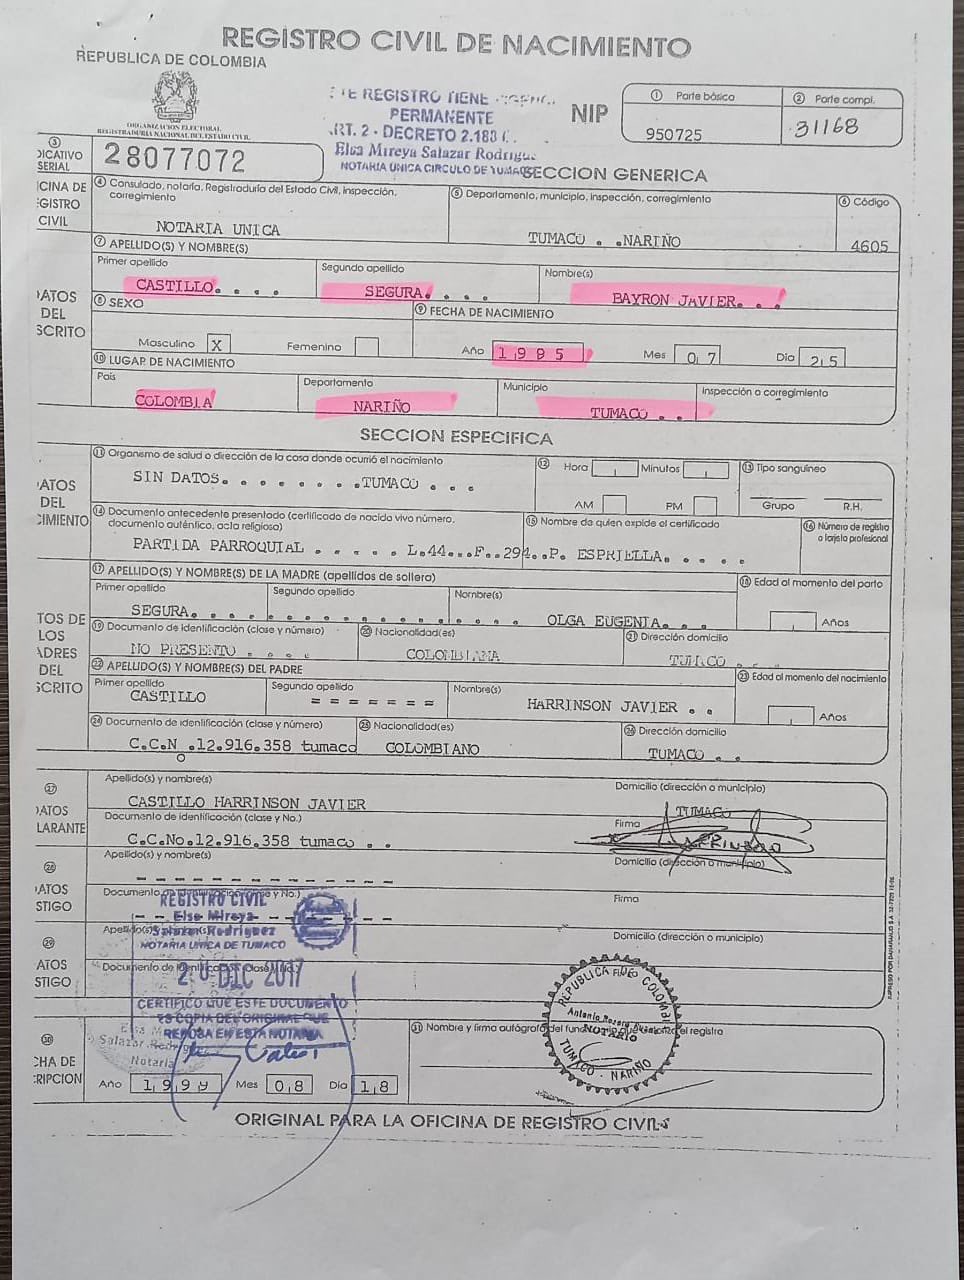 REGISTRO CIVIL DE NACIMIENTO
REPUBLICA DE COLOMBIA
ORGANIZACION ELECTORAL
REGISTRADURIA NACIONAL DEL ESTADO CIVIL
TE REGISTRO TIENE
PERMANENTE
ART. 2 - DECRETO 2.188
Elsa Mireya Salazar Rodrigue
NOTARIA UNICA CIRCULO DE TUMACO
NIP
1 Parte básica
950725
2 Parte compl.
31168
3
DICATIVO
SERIAL
28077072
SECCION GENERICA
CINA DE
GISTRO
CIVIL
4 Consulado, notaría, Registraduría del Estado Civil, inspección,
corregimiento
NOTARIA UNICA
5 Departamento, municipio, inspección, corregimiento
TUMACO . .NARIÑO
6 Código
4605
DATOS
DEL
SCRITO
7 APELLIDO(S) Y NOMBRE(S)
Primer apellido
CASTILLO. . . .
Segundo apellido
SEGURA. . . .
Nombre(s)
BAYRON JAVIER. . .
8 SEXO
Masculino X
Femenino
9 FECHA DE NACIMIENTO
Año 1995
Mes 07
Día 25
10 LUGAR DE NACIMIENTO
País
COLOMBIA
Departamento
NARIÑO
Municipio
TUMACO . .
Inspección o corregimiento
SECCION ESPECIFICA
DATOS
DEL
CIMIENTO
11 Organismo de salud o dirección de la casa donde ocurrió el nacimiento
SIN DATOS. . . . . . . .TUMACO . . .
12 Hora
Minutos
AM
PM
13 Tipo sanguíneo
Grupo
R.H.
14 Documento antecedente presentado (certificado de nacido vivo número,
documento auténtico, acta religiosa)
15 Nombre de quien expide el certificado
16 Número de registro
o tarjeta profesional
PARTIDA PARROQUIAL . . . . . L.44...F..294..P. ESPRIELLA. . . . .
TOS DE
LOS
ADRES
DEL
SCRITO
17 APELLIDO(S) Y NOMBRE(S) DE LA MADRE (apellidos de soltera)
Primer apellido
SEGURA. . . . .
Segundo apellido
Nombre(s)
OLGA EUGENIA. . .
18 Edad al momento del parto
Años
19 Documento de identificación (clase y número)
NO PRESENTO . . . .
20 Nacionalidad(es)
COLOMBIANA
21 Dirección domicilio
TUMACO . .
22 APELLIDO(S) Y NOMBRE(S) DEL PADRE
Primer apellido
CASTILLO
Segundo apellido
= = = = = = =
Nombre(s)
HARRINSON JAVIER . .
23 Edad al momento del nacimiento
Años
24 Documento de identificación (clase y número)
C.C.N .12.916.358 tumaco
o
25 Nacionalidad(es)
COLOMBIANO
26 Dirección domicilio
TUMACO . .
27
DATOS
LARANTE
Apellido(s) y nombre(s)
CASTILLO HARRINSON JAVIER
Domicilio (dirección o municipio)
TUMACO
Documento de identificación (clase y No.)
C.C.No.12.916.358 tumaco . .
Firma
28
DATOS
STIGO
Apellido(s) y nombre(s)
Domicilio (dirección o municipio)
Documento de identificación (clase y No.)
Firma
REGISTRO CIVIL
Elsa Mireya
Salazar Rodriguez
NOTARIA UNICA DE TUMACO
20 DIC 2017
CERTIFICO QUE ESTE DOCUMENTO
ES COPIA DEL ORIGINAL QUE
REPOSA EN ESTA NOTARIA
29
ATOS
STIGO
Apellido(s) y nombre(s)
Domicilio (dirección o municipio)
Documento de identificación (clase y No.)
REPUBLICA DE COLOMBIA
NOTARIO
TUMACO - NARIÑO
30
CHA DE
CRIPCION
Salazar
Notaria
Año 1999
Mes 08
Día 18
31 Nombre y firma autógrafa del funcionario que autoriza el registro
ORIGINAL PARA LA OFICINA DE REGISTRO CIVIL